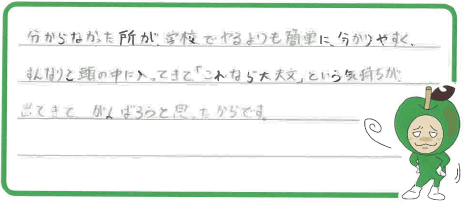 分からなかった所が、学校でやるよりも簡単に、分かりやすく、
すんなりと頭の中に入ってきて「これなら大丈夫」という気持ちが
出てきて、がんばろうと思ったからです。